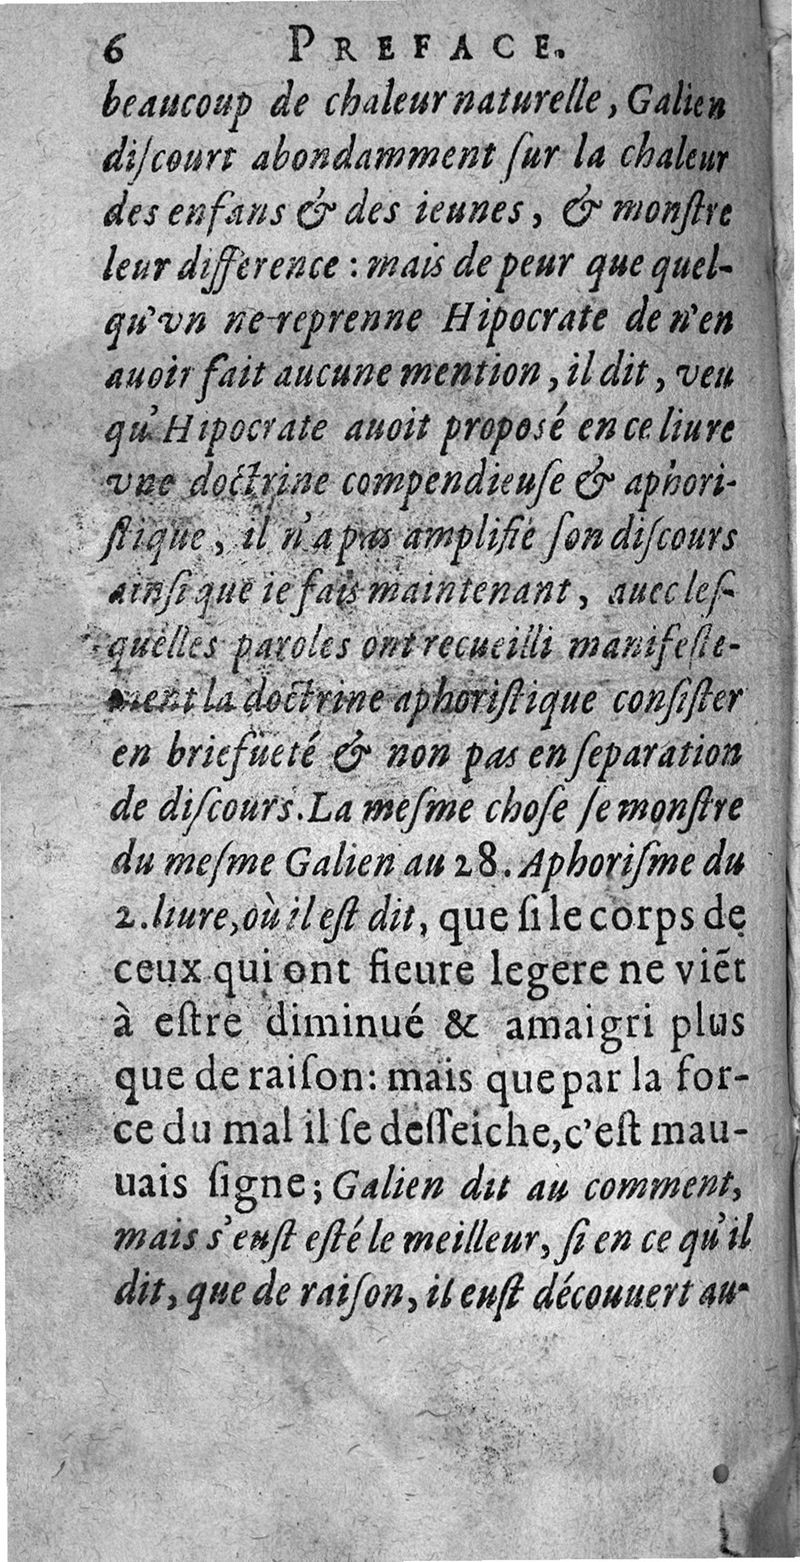 6 PREFACE.
beaucoup de chaleur naturelle, Galien
diſcourt abondamment ſur la chaleur
des enfans & des ieunes, & monſtre
leur difference : mais de peur que quel-
qu'vn ne reprenne Hipocrate de n'en
auoir fait aucune mention, il dit, veu
qu'Hipocrate auoit proposé en ce liure
vne doctrine compendieuſe & aphori-
ſtique, il n'a pas amplifié ſon diſcours
ainſi que ie fais maintenant, auec leſ-
quelles paroles ont recueilli manifeſte-
ment la doctrine aphoriſtique conſiſter
en briefueté & non pas en ſeparation
de diſcours. La meſme choſe ſe monſtre
du meſme Galien au 28. Aphoriſme du
2. liure, où il eſt dit, que ſi le corps de
ceux qui ont fieure legere ne viẽt
à eſtre diminué & amaigri plus
que de raiſon: mais que par la for-
ce du mal il ſe deſſeiche, c'eſt mau-
uais ſigne; Galien dit au comment,
mais s'euſt eſté le meilleur, ſi en ce qu'il
dit, que de raiſon, il euſt découuert au-